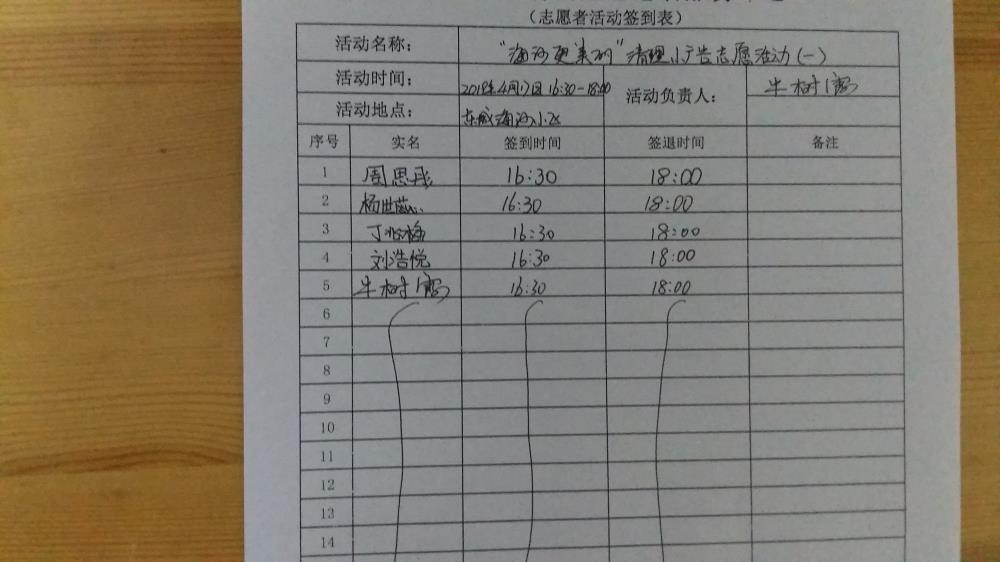 （志愿者活动签到表）
活动名称： "海河更美丽"清理小广告志愿活动（一）
活动时间： 2018年4月17日 16:30-18:00 活动负责人： 牛树
活动地点： 海河小区
序号 实名 签到时间 签退时间 备注
1 周思彤 16:30 18:00
2 杨 16:30 18:00
3 丁 梅 16:30 18:00
4 刘浩悦 16:30 18:00
5 牛树 16:30 18:00
6
7
8
9
10
11
12
13
14